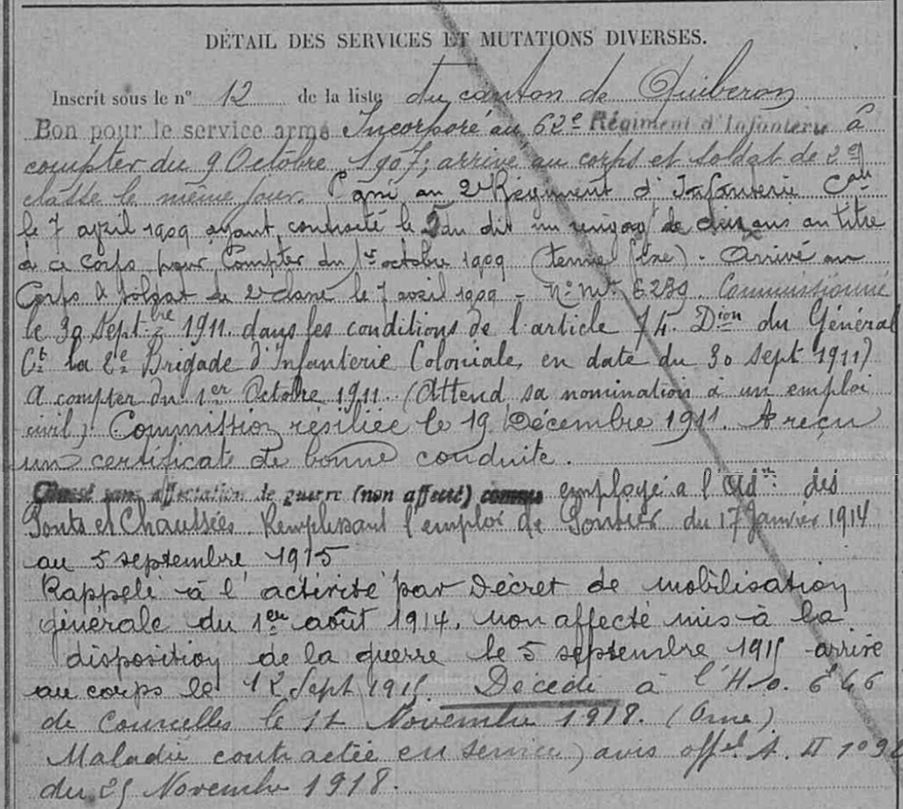 DÉTAIL DES SERVICES ET MUTATIONS DIVERSES.
Inscrit sous le n° 12 de la liste du canton de Quiberon
Bon pour le service armé Incorporé au 62e Régiment d'Infanterie à
compter du 9 Octobre 1907; arrivé au corps et soldat de 2e
classe le même jour. Passé au 2e Régiment d'Infanterie Cale
le 7 avril 1909 ayant contracté le 5 du dit un rengagt de deux ans au titre
de ce corps pour compter du 1er octobre 1909 - Arrivé au
Corps & soldat de 2e classe le 7 avril 1909 - N° Mle 6239 Commissionné
le 30 Septbre 1911. dans les conditions de l'article 74. Dion du Général
Ct la 2e Brigade d'Infanterie Coloniale, en date du 30 Sept 1911)
A compter du 1er Octobre 1911. (Attend sa nomination à un emploi
civil) Commission résiliée le 19 Décembre 1911. A reçu
un certificat de bonne conduite.
Classé sans affectation de guerre (non affecté) comme employé à l'Adon des
Ponts et Chaussées. Remplissant l'emploi de du 17 Janvier 1914
au 5 septembre 1915
Rappelé à l'activité par Décret de mobilisation
générale du 1er août 1914, non affecté mis à la
disposition de la guerre le 5 septembre 1915 arrivé
au corps le 12 Sept 1915. Décédé à l'H.O. 646
de Courcelles le 11 Novembre 1918.
Maladie contractée en service) avis offel
du 25 Novembre 1918.